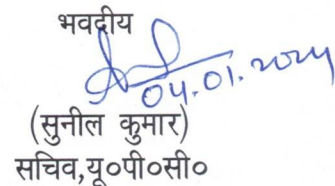 भवदीय
04.01.2024
(सुनील कुमार)
सचिव,यू०पी०सी०